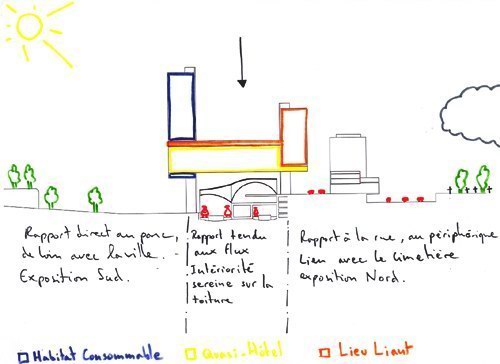 Rapport direct au parc,
de loin avec la ville.
Exposition Sud.
Rapport tendu
aux flux
Intériorité
sereine sur la
toiture
Rapport à la rue, au périphérique
Lien avec le cimetière
exposition Nord.
Habitat Consommable
Quasi-Hôtel
Lieu Liant